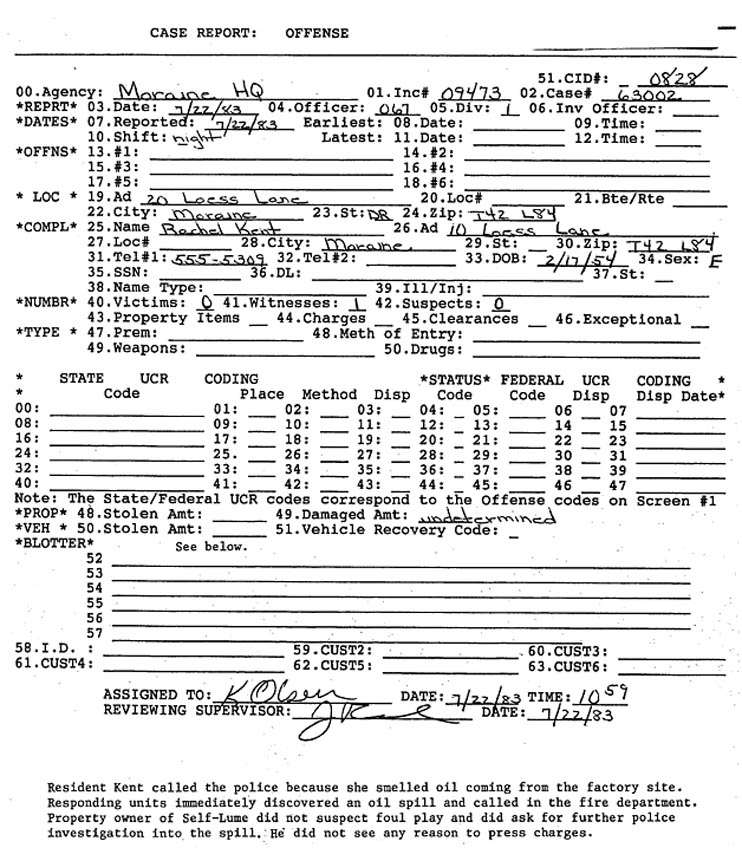 CASE REPORT: OFFENSE
51.CID#: 0828
00.Agency: Moraine HQ 01.Inc# 09473 02.Case# 63002
*REPRT* 03.Date: 7/22/83 04.Officer: 067 05.Div: 1 06.Inv Officer:
*DATES* 07.Reported: 7/22/83 Earliest: 08.Date: 09.Time:
10.Shift: night Latest: 11.Date: 12.Time:
*OFFNS* 13.#1: 14.#2:
15.#3: 16.#4:
17.#5: 18.#6:
* LOC * 19.Ad 20 Loess Lane 20.Loc# 21.Bte/Rte
22.City: Moraine 23.St: DR 24.Zip: T42 L84
*COMPL* 25.Name Rachel Kent 26.Ad 10 Loess Lane
27.Loc# 28.City: Moraine 29.St: 30.Zip: T42 L84
31.Tel#1: 555-5309 32.Tel#2: 33.DOB: 2/17/54 34.Sex: F
35.SSN: 36.DL: 37.St:
38.Name Type: 39.Ill/Inj:
*NUMBR* 40.Victims: 0 41.Witnesses: 1 42.Suspects: 0
43.Property Items 44.Charges 45.Clearances 46.Exceptional
*TYPE * 47.Prem: 48.Meth of Entry:
49.Weapons: 50.Drugs:
* STATE UCR CODING *STATUS* FEDERAL UCR CODING *
* Code Place Method Disp Code Code Disp Disp Date*
00: 01: 02: 03: 04: 05: 06 07
08: 09: 10: 11: 12: 13: 14 15
16: 17: 18: 19: 20: 21: 22 23
24: 25. 26: 27: 28: 29: 30 31
32: 33: 34: 35: 36: 37: 38 39
40: 41: 42: 43: 44: 45: 46 47
Note: The State/Federal UCR codes correspond to the Offense codes on Screen #1
*PROP* 48.Stolen Amt: 49.Damaged Amt: undetermined
*VEH * 50.Stolen Amt: 51.Vehicle Recovery Code:
*BLOTTER* See below.
52
53
54
55
56
57
58.I.D. : 59.CUST2: 60.CUST3:
61.CUST4: 62.CUST5: 63.CUST6:
ASSIGNED TO: K Olsen DATE: 7/22/83 TIME: 1059
REVIEWING SUPERVISOR: DATE: 7/22/83
Resident Kent called the police because she smelled oil coming from the factory site.
Responding units immediately discovered an oil spill and called in the fire department.
Property owner of Self-Lume did not suspect foul play and did ask for further police
investigation into the spill. He did not see any reason to press charges.